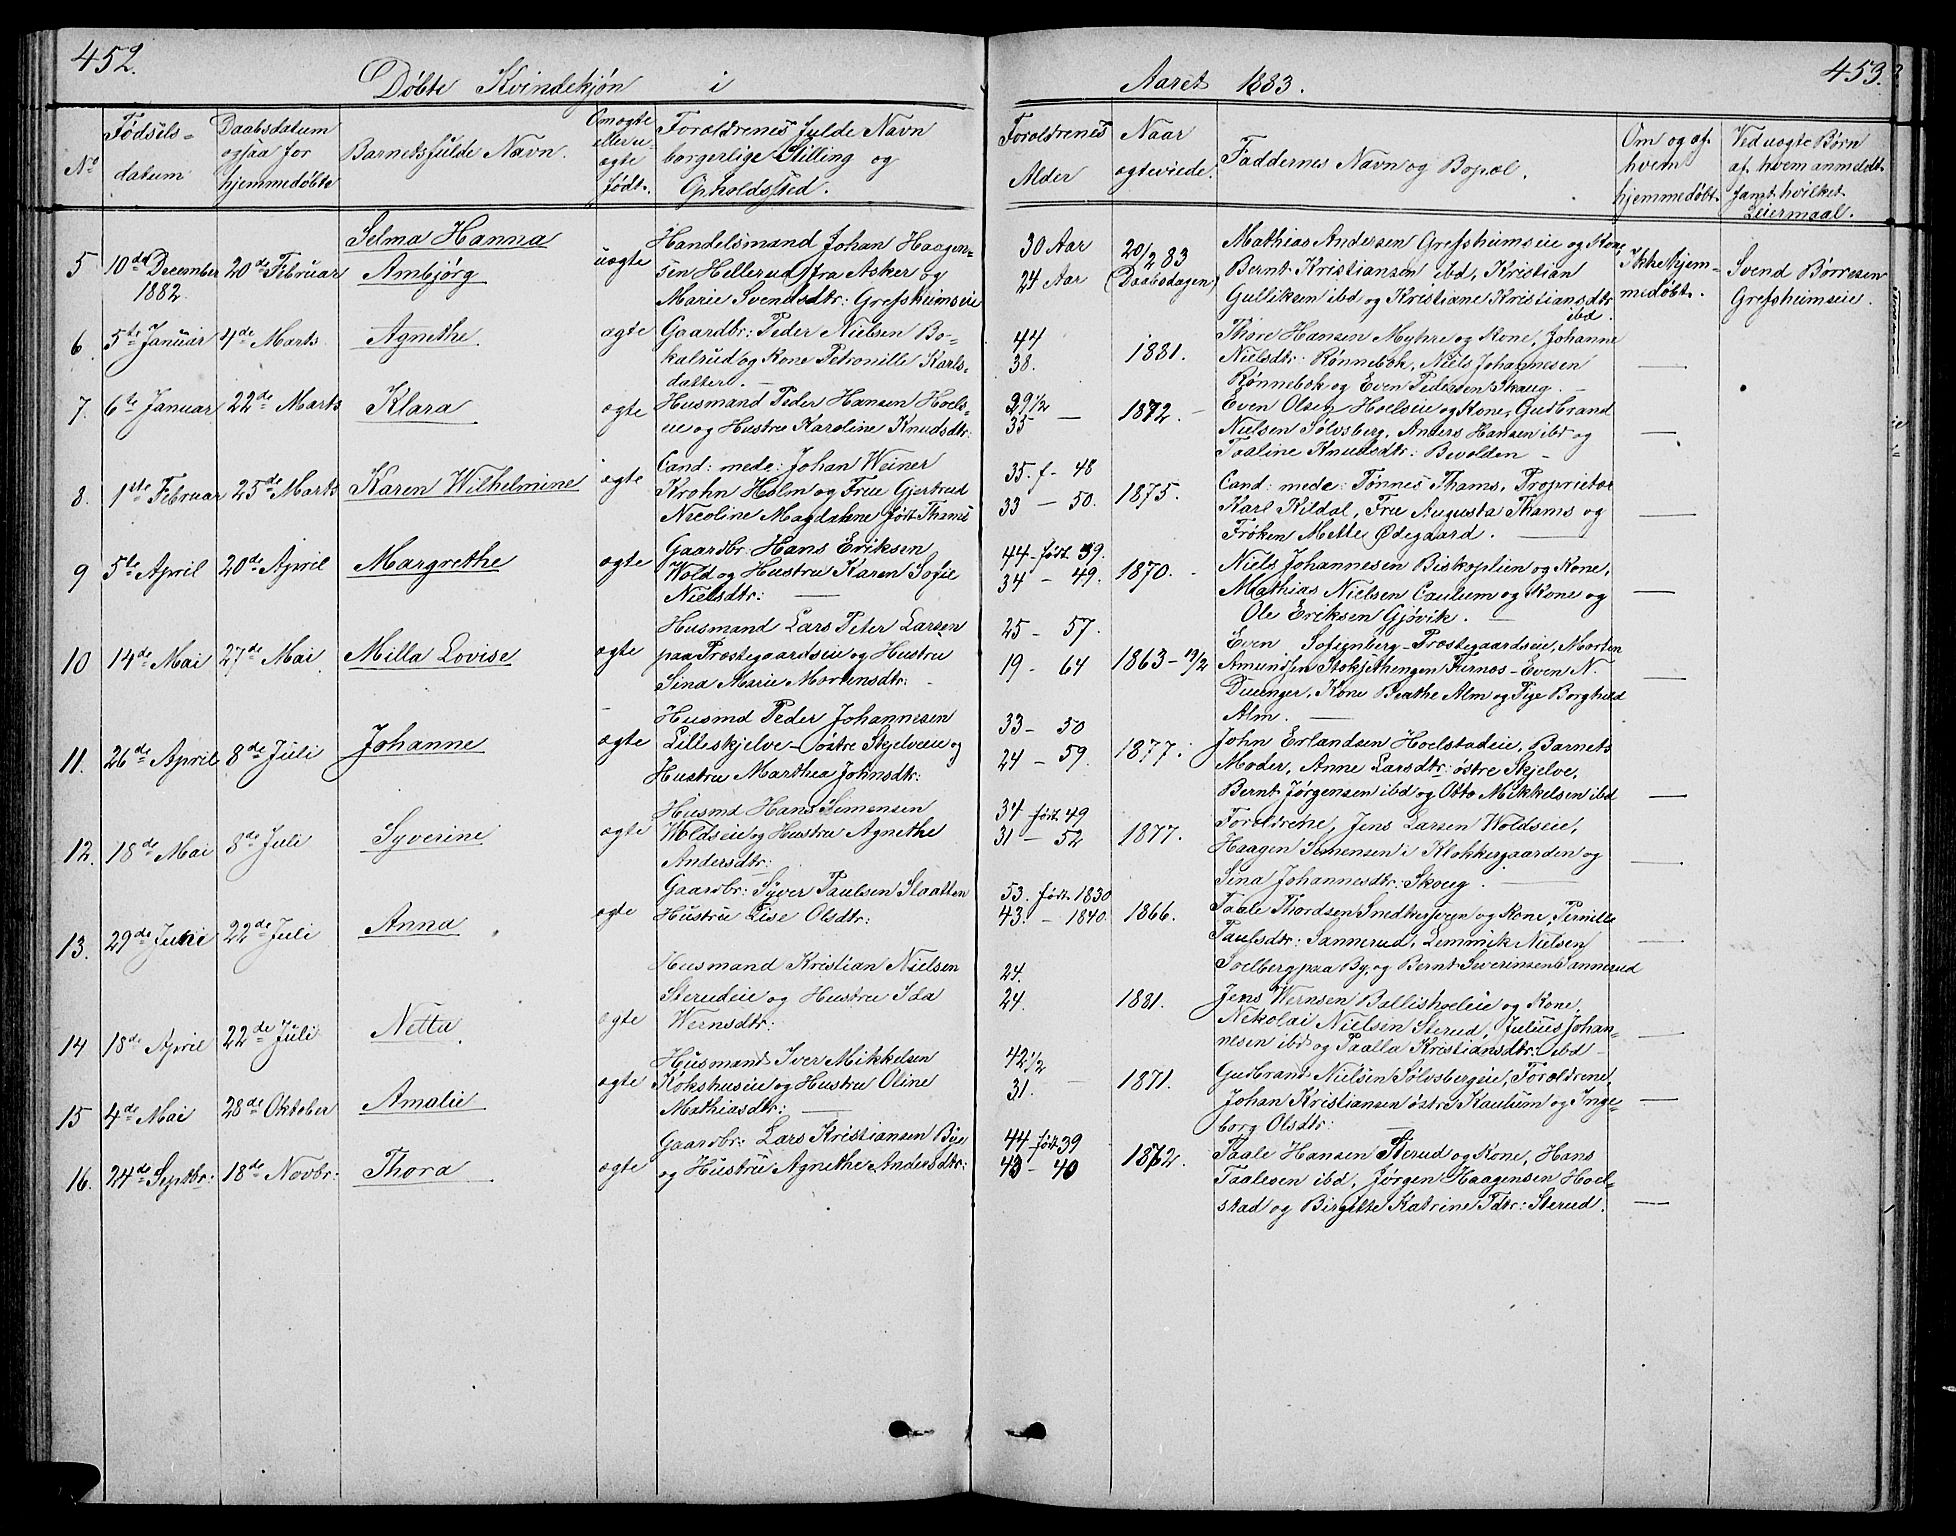 452.
Døbte Kvindekjøn i
No
Fødsels-
datum
Daabsdatum
ogsaa for
hjemmedøbte
Barnets fulde Navn.
Om ægte
eller u-
ægte
født.
Forældrenes fulde Navn
borgerlige Stilling og
Opholdssted.
5
10de December
1882.
20de Februar
Selma Hanna
Ambjørg
uægte
Handelsmand Johan Haagen-
sen Hellerud fra Asker og
Marie Svendsdtr: Grefsheimseie
6.
5te Januar
4de Marts
Agnethe
ægte
Gaardbr: Peder Nielsen Bo-
kalrud og Kone Petronille Karls-
datter. —
7.
6te Januar
22de Marts
Klara
ægte
Husmand Peder Hansen Hoels-
eie og Hustru Karoline Knudsdtr:
8.
1ste Februar
25de Marts
Karen Wilhelmine
ægte
Cand: mede: Johan Weiner
Krohn Holm og Frue Gjertrud
Nicoline Magdalene født Thams
9
5te April
20de April
Margrethe
ægte
Gaardbr. Hans Eriksen
Wold og Hustru Karen Sofie
Nielsdtr: —
10
14de Mai
27de Mai
Milla Lovise
ægte
Husmand Lars Peter Larsen
paa Præstegaardseie og Hustru
Sina Marie Mortensdtr: -
11.
26de April
8de Juli
Johanne
ægte
Husmd Peder Johannesen
Lilleskjelve - østre Skjelveeie og
Hustru Marthea Johnsdtr:
12.
18de Mai
8de Juli
Syverine
ægte
Husmd Hans Simensen
Woldseie og Hustru Agnethe
Andersdtr:
13.
29de Juni
22de Juli
Anna
ægte
Gaardbr: Syver Paulsen Slaatten
Hustru Lise Olsdtr:
14
18de April
22de Juli
Netta
ægte
Husmand Kristian Nielsen
Sterudeie og Hustru Ida
Wernsdtr:
15
4de Mai
28de Oktober
Amalie
ægte
Husmand Iver Mikkelsen
Kokshuseie og Hustru Oline
Mathiasdtr: —
16.
24de Septbr:
18de Novbr:
Thora
ægte
Gaardbr: Lars Kristiansen Bye
og Hustru Agnethe Andersdtr:
453.
Aaret 1883.
Forældrenes
Alder
Naar
ægteviede.
Faddernes Navn og Bopæl.
Om og af
hvem
hjemmedøbt.
Ved uægte Børn
af hvem anmeldt
samt hvilket
Leiermaal.
30 Aar
24 Aar
20/2 83
(Daabsdagen)
Mathias Andersen Grefsheimseie og Kone,
Bernt Kristiansen ibd, Kristian
Gulliksen ibd og Kristiane Kristiansdtr
ibd.
Ikke hjem-
medøbt.
Svend Børresen
Grefsheimseie.
44
38.
1881.
Thore Hansen Myhre og Kone, Johanne
Nielsdtr: Rønnebok, Niels Johannesen
Rønnebok og Even Pedersen Skaug. —
39 1/2
35 —
1872. -
Even Olsen Hoelseie og Kone, Gudbrand
Nielsen Sølvsberg, Anders Hansen ibd og
Taaline Knudsdtr: Bevolden -
35. f - 48
33 — 50.
1875.
Cand: mede: Tønnes Thams, Proprietær
Karl Kildal, Frue Augusta Thams og
Frøken Mette Ødegaard. —
44 - født 39.
34 - 49.
1870. -
Niels Johannesen Biskoplien og Kone,
Mathias Nielsen Caulum og Kone og
Ole Eriksen Gjøvik. —
25 - 57.
19 - 64
1863 - 19/2
Even Sofienberg - Præstegaardseie, Morten
Amundsen Stokjethengen Furnæs - Even N.
Duenger, Kone Beathe Alm og Pige Borghild
Alm. —
33 - 50
24 - 59.
1877.
John Erlandsen Hoelstadeie, Barnets
Moder, Anne Larsdtr: østre Skjelve,
Bernt Jørgensen ibd og Otto Mikkelsen ibd
34 født 49
31 - 52
1877.
Forældrene, Jens Larsen Woldseie,
Haagen Simensen i Klokkergaarden og
Sina Johannesdtr: Skoug. —
53. født 1830
43. - 1840
1866.
Taale Thordsen Smedkerseven og Kone, Pernille
Paulsdtr: Sannerud, Lemmik Nielsen
Soelberg paa By, og Bernt Severinsen Sannerud
24.
24.
1881.
Jens Wernsen Ballishoeleie og Kone,
Nikolai Nielsen Sterud, Julius Johan-
nesen ibd og Paalla Kristiansdtr: ibd -
42 1/2
31. —
1871.
Gudbrand Nielsen Sølvsbergeie, Forældrene,
Johan Kristiansen østre Kaulum og Inge-
borg Olsdtr: —
44 født 39
43 - 40
1862.
Taale Hansen Sterud og Kone, Hans
Taalesen ibd, Jørgen Haagensen Hoel-
stad og Birgitte Katrine Pdtr: Sterud.